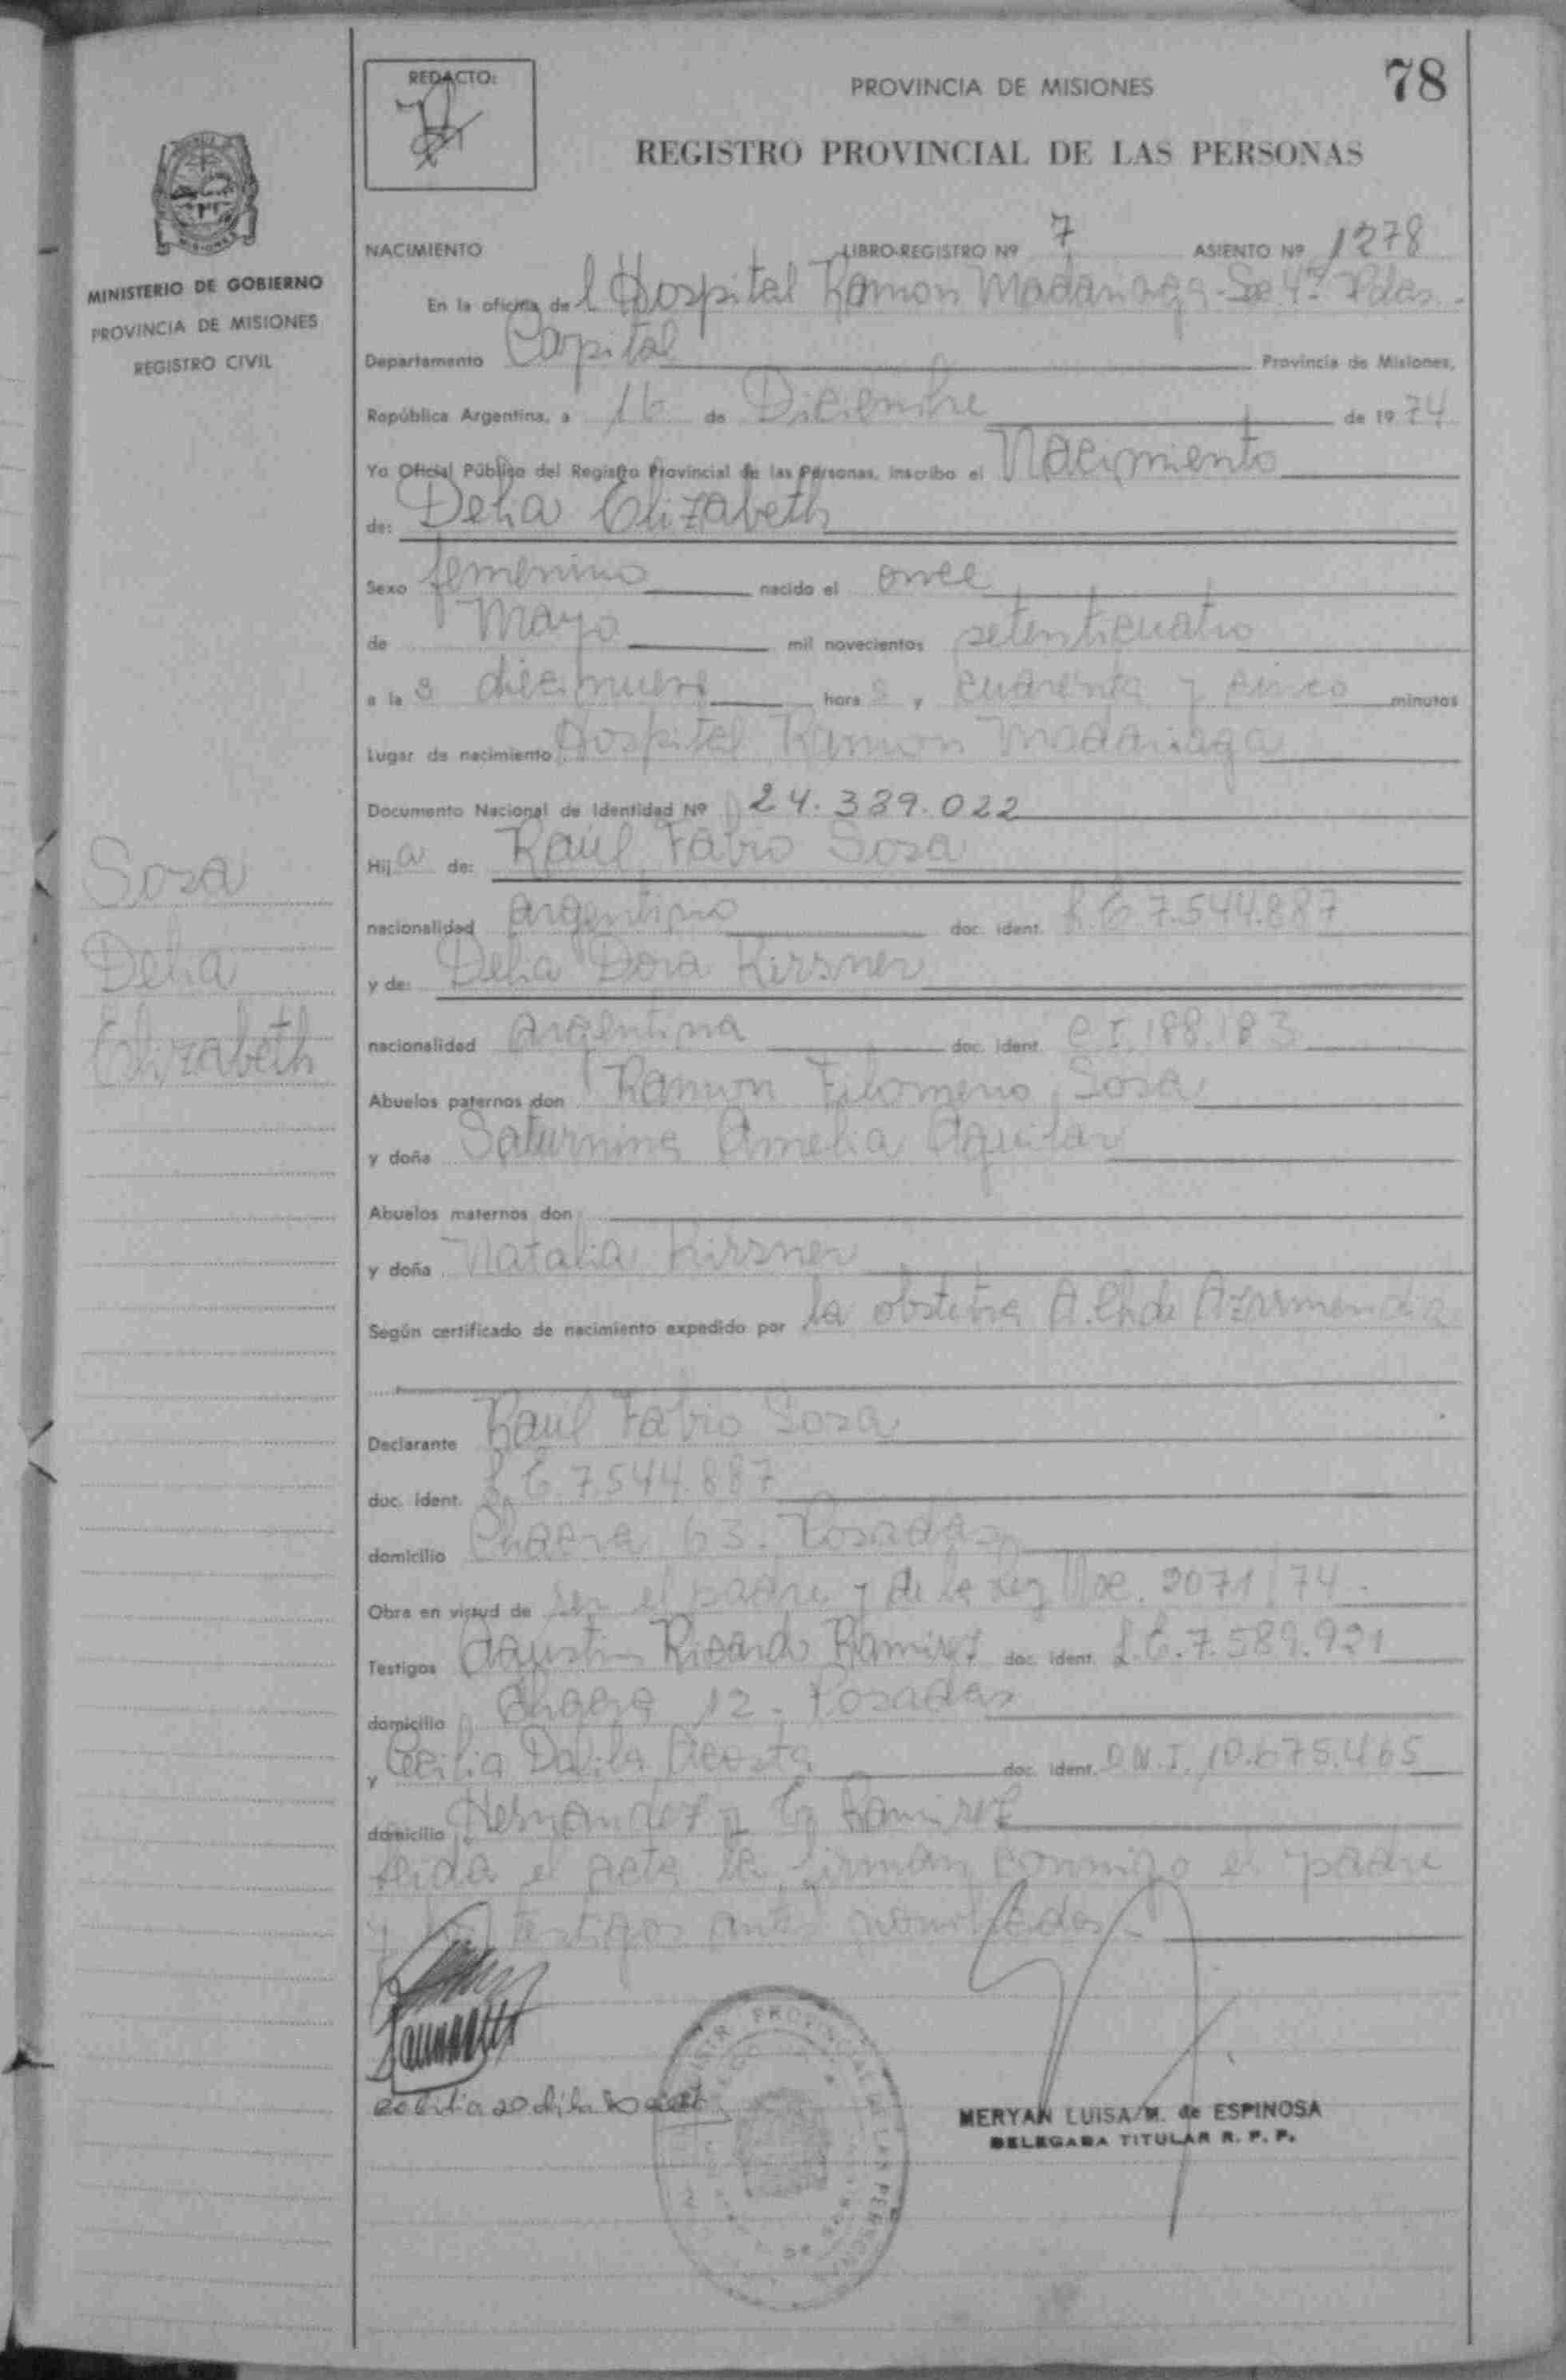 REDACTO:
PROVINCIA DE MISIONES
78
REGISTRO PROVINCIAL DE LAS PERSONAS
MINISTERIO DE GOBIERNO
PROVINCIA DE MISIONES
REGISTRO CIVIL
NACIMIENTO LIBRO-REGISTRO Nº 7 ASIENTO Nº 1278
En la oficina de l Hospital Ramon Madariaga - 4ª Pdas.
Departamento Capital Provincia de Misiones,
República Argentina, a 16 de Diciembre de 1974
Yo Oficial Público del Registro Provincial de las Personas, inscribo el Nacimiento
de: Delia Elizabeth
Sexo femenino nacido el once
de Mayo mil novecientos setenticuatro
a la s diecinueve hora s y cuarenta y cinco minutos
Lugar de nacimiento Hospital Ramon Madariaga
Documento Nacional de Identidad Nº 24.339.022
Hij a de: Raúl Fabio Sosa
nacionalidad argentino doc. ident. L.E 7.544.887
y de: Delia Dora Kirsner
nacionalidad argentina doc. ident. C.I. 188.183
Abuelos paternos don Ramon Filomeno Sosa
y doña Saturnina Amelia Aguilar
Abuelos maternos don
y doña Natalia Kirsner
Según certificado de nacimiento expedido por la obstetra A. Ch de Azarmendia
Declarante Raúl Fabio Sosa
doc. ident. L.E. 7.544.887
domicilio Chacra 63. Posadas
Obra en virtud de ser el padre y de la Ley 2071/74.
Testigos Agustin Ricardo Ramirez doc. ident. L.E. 7.589.921
domicilio Chacra 12 - Posadas
y Cecilia Dalila Acosta doc. ident. D.N.I. 10.675.465
domicilio Hernandez y Ramirez
leida el acta la firman conmigo el padre
y testigos antes nombrados.-
Sosa
Delia
Elizabeth
MERYAN LUISA M. de ESPINOSA
DELEGADA TITULAR R. P. P.